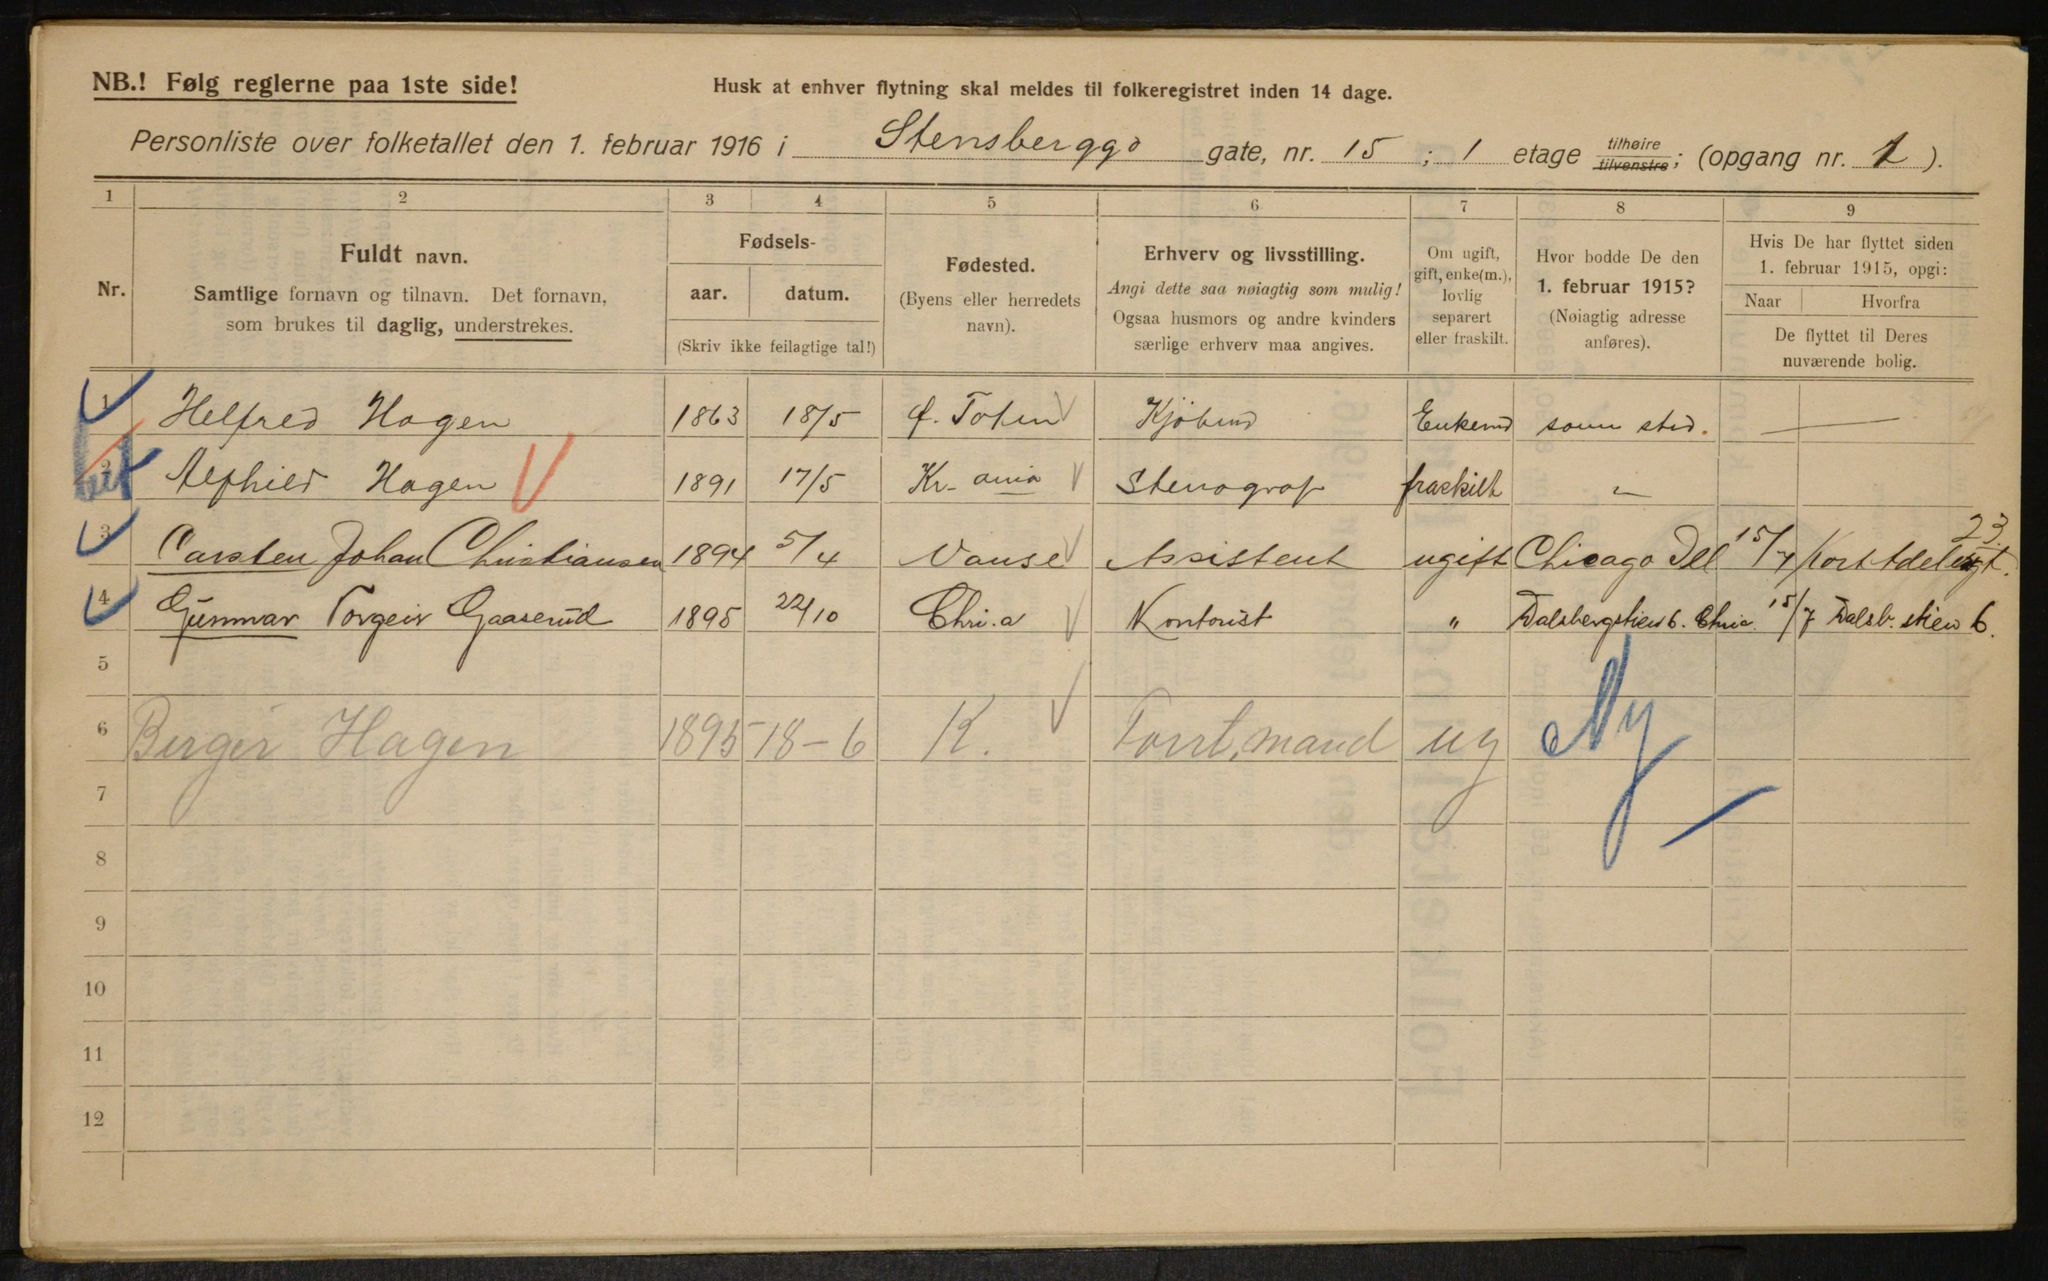 NB.! Følg reglerne paa 1ste side!
Husk at enhver flytning skal meldes til folkeregistret inden 14 dage.
Personliste over folketallet den 1. februar 1916 i Stensberggd gate, nr. 15 ; 1 etage tilhøire tilvenstre; (opgang nr. 1 ).
1 2 3 4 5 6 7 8 9
Nr.
Fuldt navn.
Samtlige fornavn og tilnavn. Det fornavn,
som brukes til daglig, understrekes.
Fødsels-
aar. datum.
(Skriv ikke feilagtige tal!)
Fødested.
(Byens eller herredets
navn).
Erhverv og livsstilling.
Angi dette saa nøiagtig som mulig!
Ogsaa husmors og andre kvinders
særlige erhverv maa angives.
Om ugift,
gift, enke(m.),
lovlig
separert
eller fraskilt.
Hvor bodde De den
1. februar 1915?
(Nøiagtig adresse
anføres).
Hvis De har flyttet siden
1. februar 1915, opgi:
Naar Hvorfra
De flyttet til Deres
nuværende bolig.
1 Helfred Hagen 1863 18/5 Ø. Toten Enkemd som sted. —
2 Alfhild Hagen 1891 17/5 Kr. ania Stenograf fraskilt "
3 Carsten Johan Christiansen 1894 5/4 Vanse Assistent ugift Chicago Ill 15/7 23.
4 Gunnar Torgeir Gaaserud 1895 22/10 Chri.a Kontorist " Dalsbergstien 6. Chria. 15/7 Dalsb. stien 6.
5
6 Birger Hagen 1895 18-6 K. ug Ny
7
8
9
10
11
12